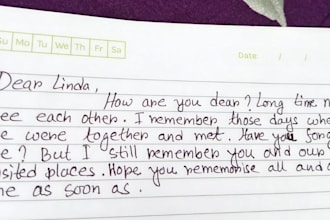 Su Mo Tu We Th Fr Sa
Date: / /
Dear Linda,
How are you dear? Long time n
ee each other. I remember those days whe
e were together and met. Have you forg
e? But I still remember you and our
isited places. Hope you rememorise all and
me as soon as.